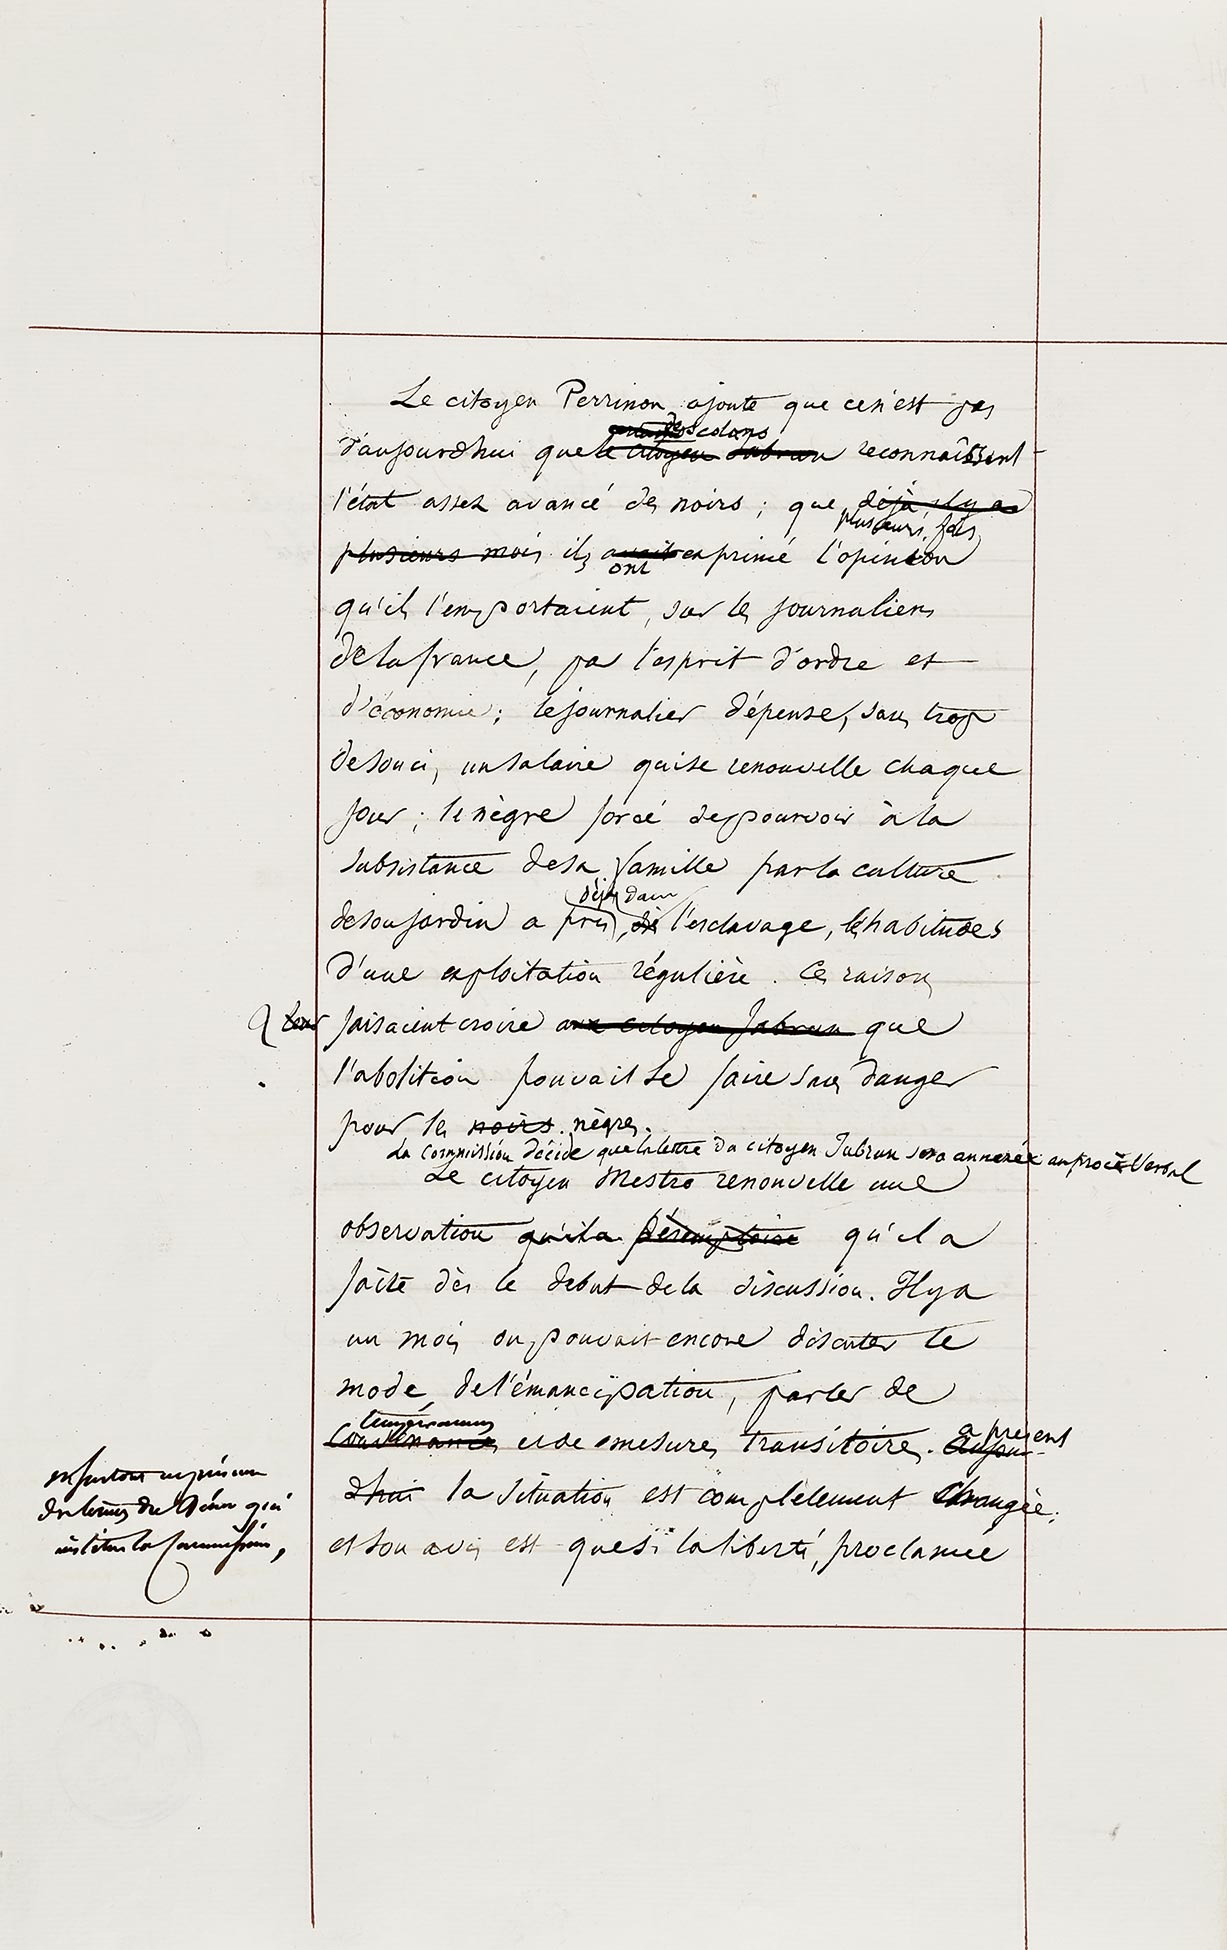 Le citoyen Perrinon ajoute que ce n'est pas
des colons
d'aujourd'hui que le citoyen Jabrun reconnaissent
l'état assez avancé des noirs ; que déjà il y a
plusieurs fois
plusieurs mois ils avait exprimé l'opinion
ont
qu'ils l'emportaient, sur les journaliers
de la france, par l'esprit d'ordre et
d'économie ; le journalier dépense, sans trop
de souci, un salaire qui se renouvelle chaque
jour ; le nègre forcé de pourvoir à la
subsistance de sa famille par la culture
déjà dans
de son jardin a pris, de l'esclavage, les habitudes
d'une exploitation régulière. Ces raisons
leur faisaient croire au citoyen Jabrun que
l'abolition pouvait se faire sans danger
pour les noirs. nègres.
La Commission décide que la lettre du citoyen Jabrun sera annexée au procès Verbal
Le citoyen Mestro renouvelle une
observation qu'il a péremptoire qu'il a
faite dès le debut de la discussion. Il y a
un mois on pouvait encore discuter le
mode de l'émancipation, parler de
tempéraments a present
et de mesures transitoires. Aujour-
dhui la situation est complètement changée,
en s'en
des termes du Décret qui
institue la Commission,
et son avis est que si la liberté, proclamée